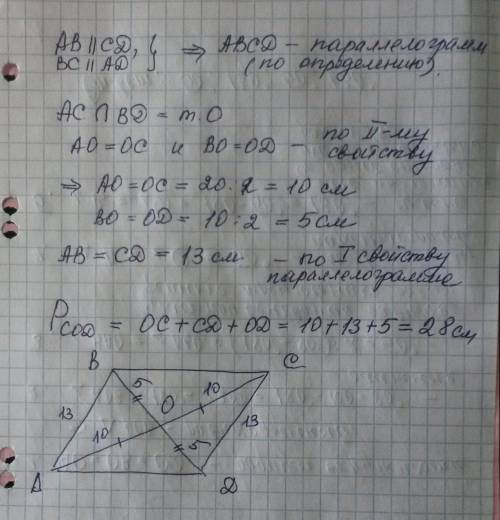 AB || CD, } ⇒ ABCD – параллелограмм
BC || AD } (по определению).
AC ∩ BD = т.O
AO = OC и BO = OD – по II-му свойству
⇒ AO = OC = 20 : 2 = 10 см
BO = OD = 10 : 2 = 5 см
AB = CD = 13 см – по I свойству
параллелограмма
P COD = OC + CD + OD = 10 + 13 + 5 = 28 см
B C
5 10
O
13 13
10 5
A D